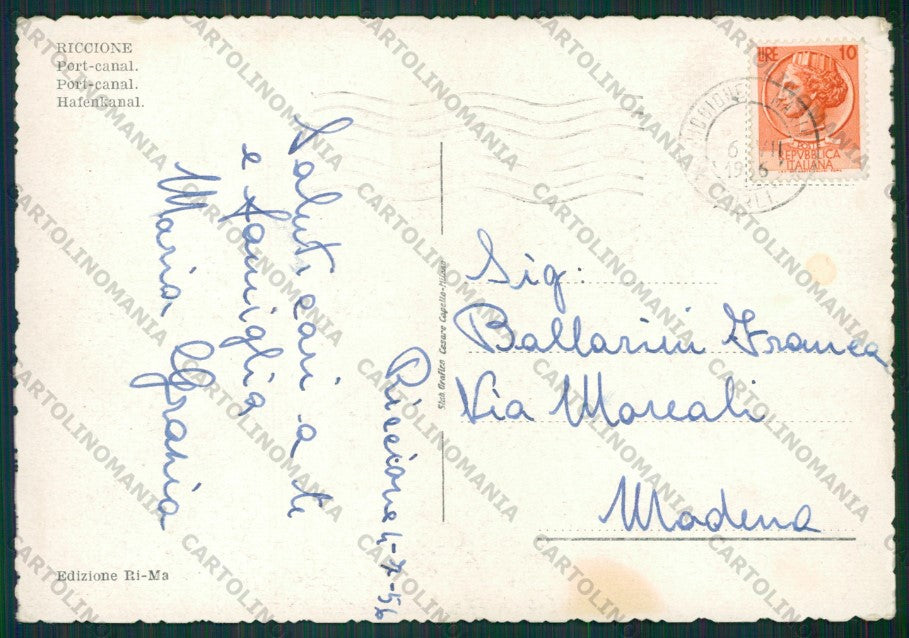 RICCIONE
Port-canal.
Port-canal.
Hafenkanal.
LIRE 10
POSTE
REPVBBLICA
ITALIANA
RICCIONE
1956
Riccione 4-7-56
Saluti cari a te
e famiglia
Maria Grazia
Stab. Grafico Cesare Capello-Milano
Sig:
Ballarini Franca
Via Morcali
Modena
Edizione Ri-Ma
CARTOLINOMANIA